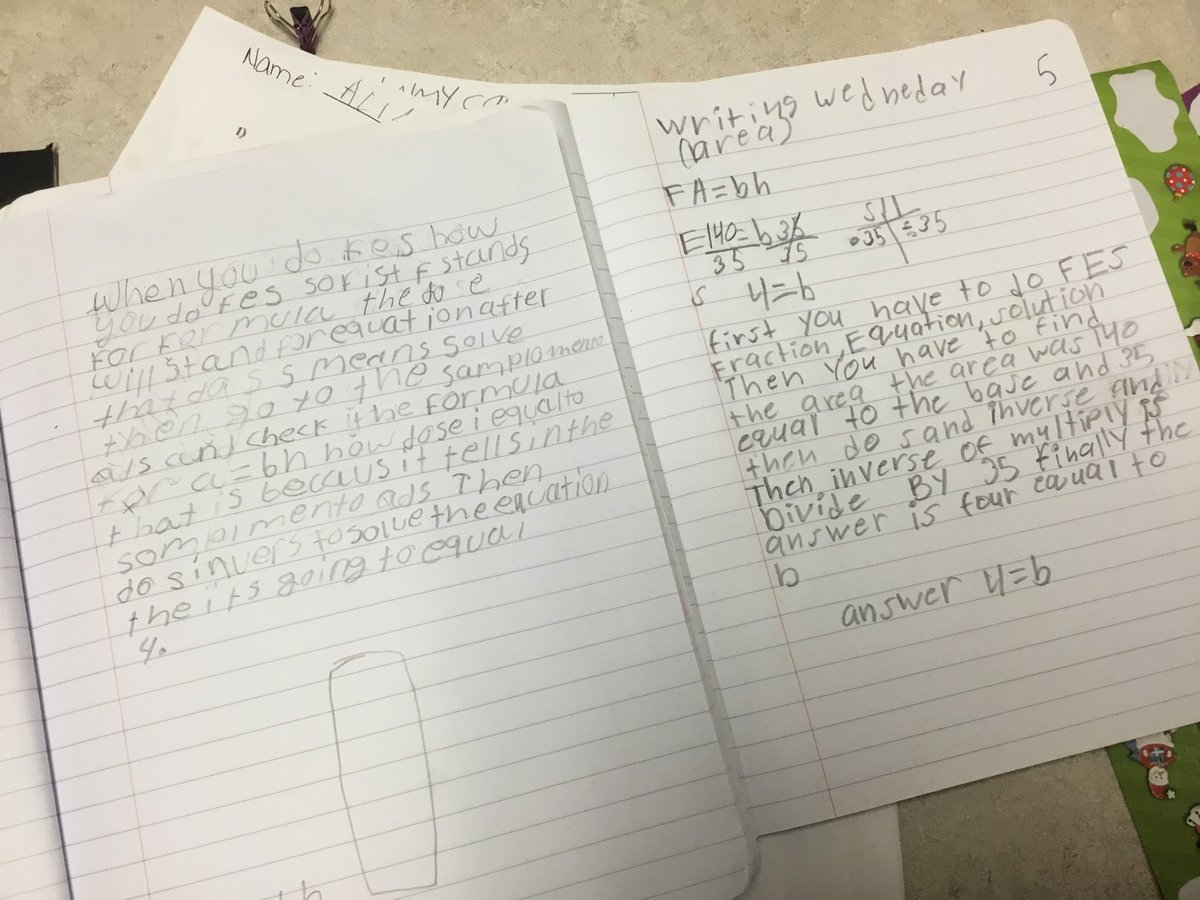 Name:
When you do fes how
you do fes sor ist F stands
for formula the do e
will stand for equation after
that da s s means solve
then go to the samplomento
ads and check if he formula
for a=bh how dose i equal to
that is becaus it tells in the
somplmento ads Then
do s invers to solve the equation
the its going to equal
4.
b
Writing wedneday 5
(area)
F A=bh
E 140=b35 S | I
35 35 •35 | ÷35
S 4=b
first you have to do FES
Fraction, Equation, solution
Then you have to find
the area the area was 140
equal to the base and 35
then do s and inverse and
Then inverse of multiply is
Divide By 35 finally the
answer is four equal to
b
answer 4=b